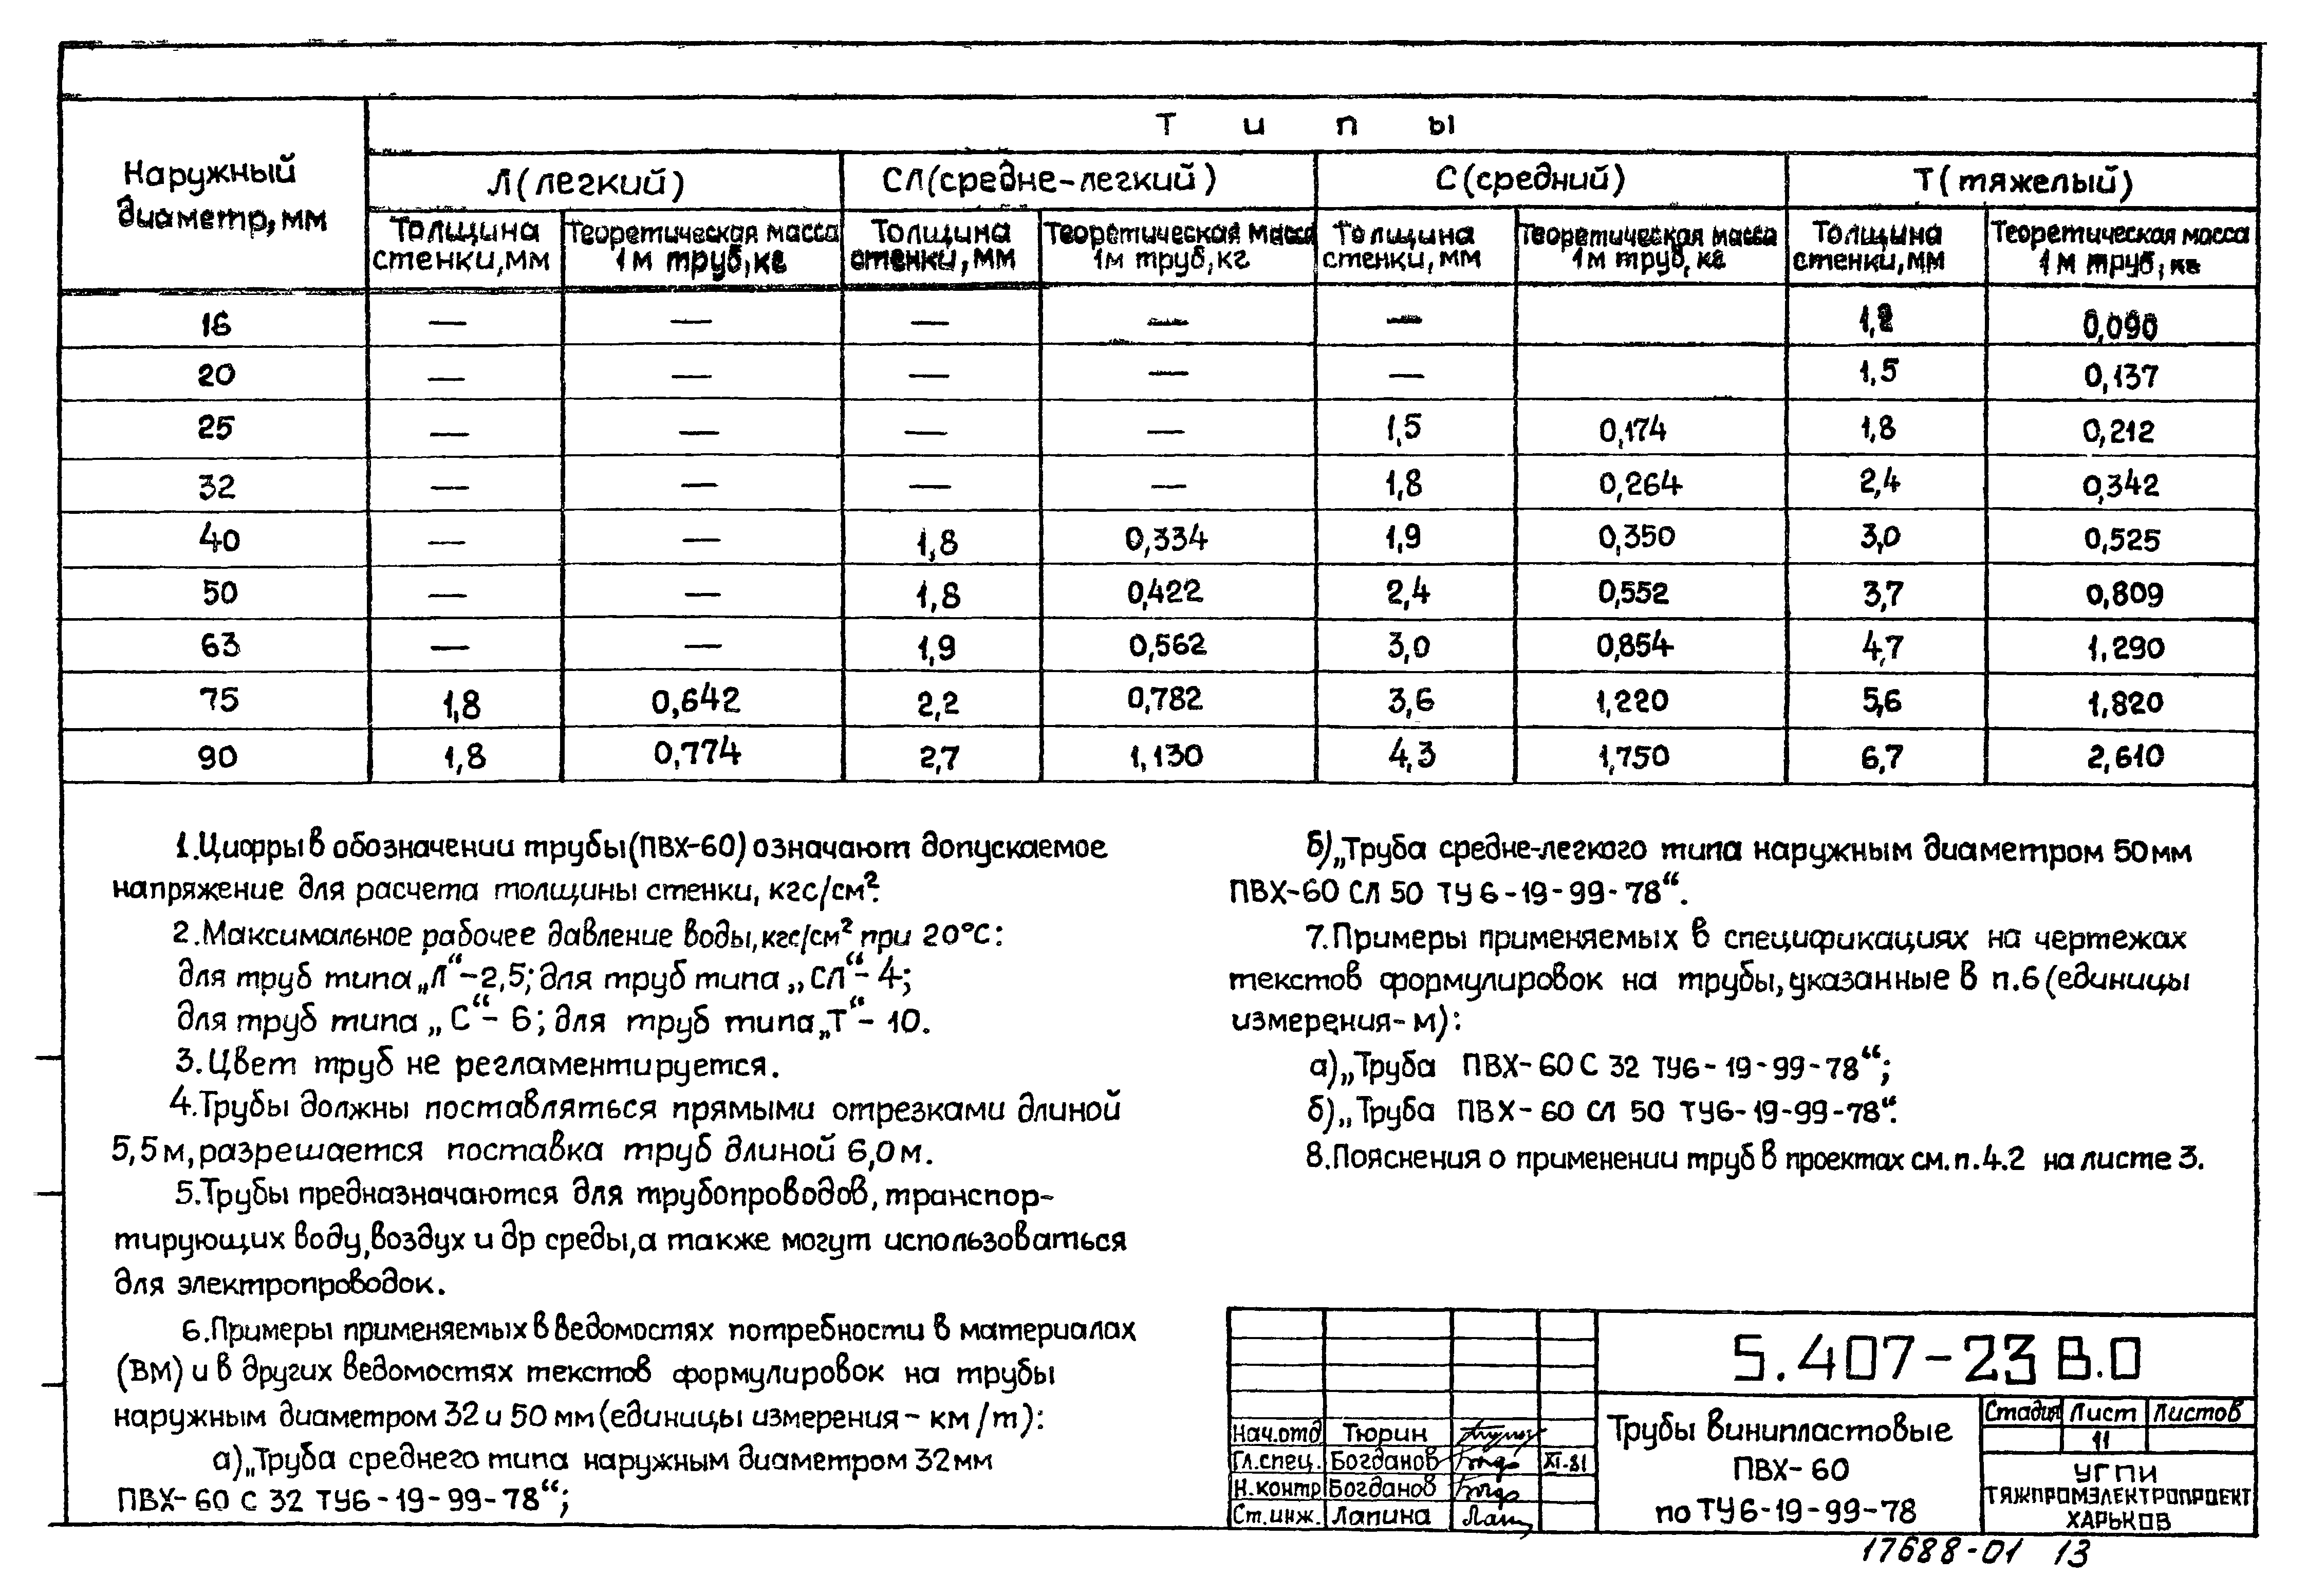 Наружный диаметр, мм
Т и п ы
Л (легкий) СЛ (средне-легкий) С (средний) Т (тяжелый)
Толщина стенки, мм Теоретическая масса 1м труб, кг Толщина стенки, мм Теоретическая масса 1м труб, кг Толщина стенки, мм Теоретическая масса 1м труб, кг Толщина стенки, мм Теоретическая масса 1м труб, кг
16 — — — — — 1,2 0,090
20 — — — — — 1,5 0,137
25 — — — — 1,5 0,174 1,8 0,212
32 — — — — 1,8 0,264 2,4 0,342
40 — — 1,8 0,334 1,9 0,350 3,0 0,525
50 — — 1,8 0,422 2,4 0,552 3,7 0,809
63 — — 1,9 0,562 3,0 0,854 4,7 1,290
75 1,8 0,642 2,2 0,782 3,6 1,220 5,6 1,820
90 1,8 0,774 2,7 1,130 4,3 1,750 6,7 2,610
1. Цифры в обозначении трубы (ПВХ-60) означают допускаемое
напряжение для расчета толщины стенки, кгс/см².
2. Максимальное рабочее давление воды, кгс/см² при 20°С:
для труб типа „Л“ – 2,5; для труб типа „СЛ“ – 4;
для труб типа „С“ – 6; для труб типа „Т“ – 10.
3. Цвет труб не регламентируется.
4. Трубы должны поставляться прямыми отрезками длиной
5,5 м, разрешается поставка труб длиной 6,0 м.
5. Трубы предназначаются для трубопроводов, транспор-
тирующих воду, воздух и др среды, а также могут использоваться
для электропроводок.
6. Примеры применяемых в ведомостях потребности в материалах
(ВМ) и в других ведомостях текстов формулировок на трубы
наружным диаметром 32 и 50 мм (единицы измерения – км/т):
а) „Труба среднего типа наружным диаметром 32 мм
ПВХ-60 С 32 ТУ6-19-99-78“;
б) „Труба средне-легкого типа наружным диаметром 50 мм
ПВХ-60 СЛ 50 ТУ 6-19-99-78“.
7. Примеры применяемых в спецификациях на чертежах
текстов формулировок на трубы, указанные в п.6 (единицы
измерения – м):
а) „Труба ПВХ-60 С 32 ТУ6-19-99-78“;
б) „Труба ПВХ-60 СЛ 50 ТУ6-19-99-78“.
8. Пояснения о применении труб в проектах см. п. 4.2 на листе 3.
5.407-23 В.0
Нач.отд Тюрин
Гл.спец. Богданов XI-81
Н.контр Богданов
Ст.инж. Лапина
Трубы винипластовые
ПВХ-60
по ТУ6-19-99-78
Стадия Лист Листов
11
УГПИ
ТЯЖПРОМЭЛЕКТРОПРОЕКТ
ХАРЬКОВ
17688-01 13